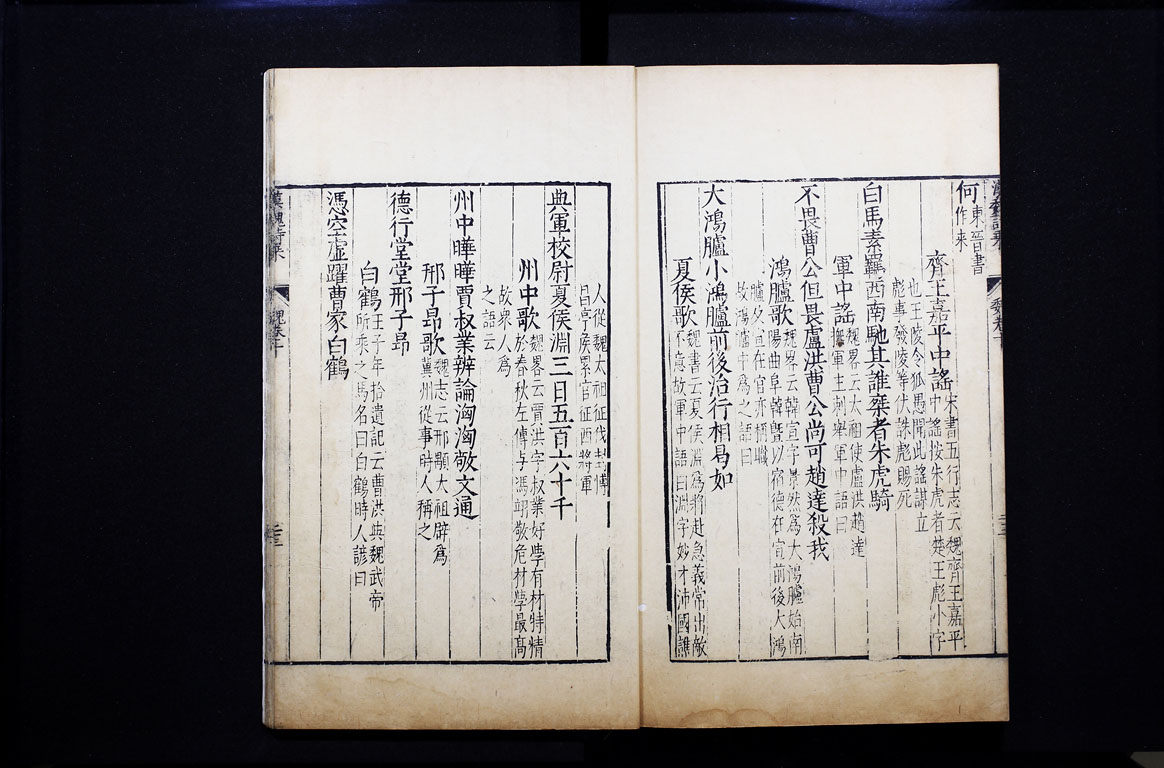 何東晉書作來
齊王嘉平中謠宋書五行志云魏齊王嘉平中謠按朱虎者楚王彪小字
也王陵令狐愚聞此謠謀立彪事發陵等伏誅彪賜死
白馬素羈西南馳其誰乘者朱虎騎
軍中謠魏畧云太祖使盧洪趙達撫軍主刺舉軍中語曰
不畏曹公但畏盧洪曹公尚可趙達殺我
鴻臚歌魏畧云韓宣字景然為大鴻臚始南陽曲阜韓暨以宿德在宣前後大鴻
臚及宣在官亦稱職故鴻臚中為之語曰
大鴻臚小鴻臚前後治行相曷如
夏侯歌魏書云夏侯淵為將赴急義常出敵不意故軍中語曰淵字妙才沛國譙
人從魏太祖征伐封博昌亭侯累官征西將軍
典軍校尉夏侯淵三日五百六十千
州中歌魏畧云賈洪字叔業好學有材特精於春秋左傳与馮翊敬危材學最高
故衆人為之語云
州中曄曄賈叔業辨論洶洶敬文通
邢子昂歌魏志云邢顒太祖辟為冀州從事時人稱之
德行堂堂邢子昂
白鶴王子年拾遺記云曹洪與魏武帝所乘之馬名曰白鶴時人諺曰
憑空虛躍曹家白鶴